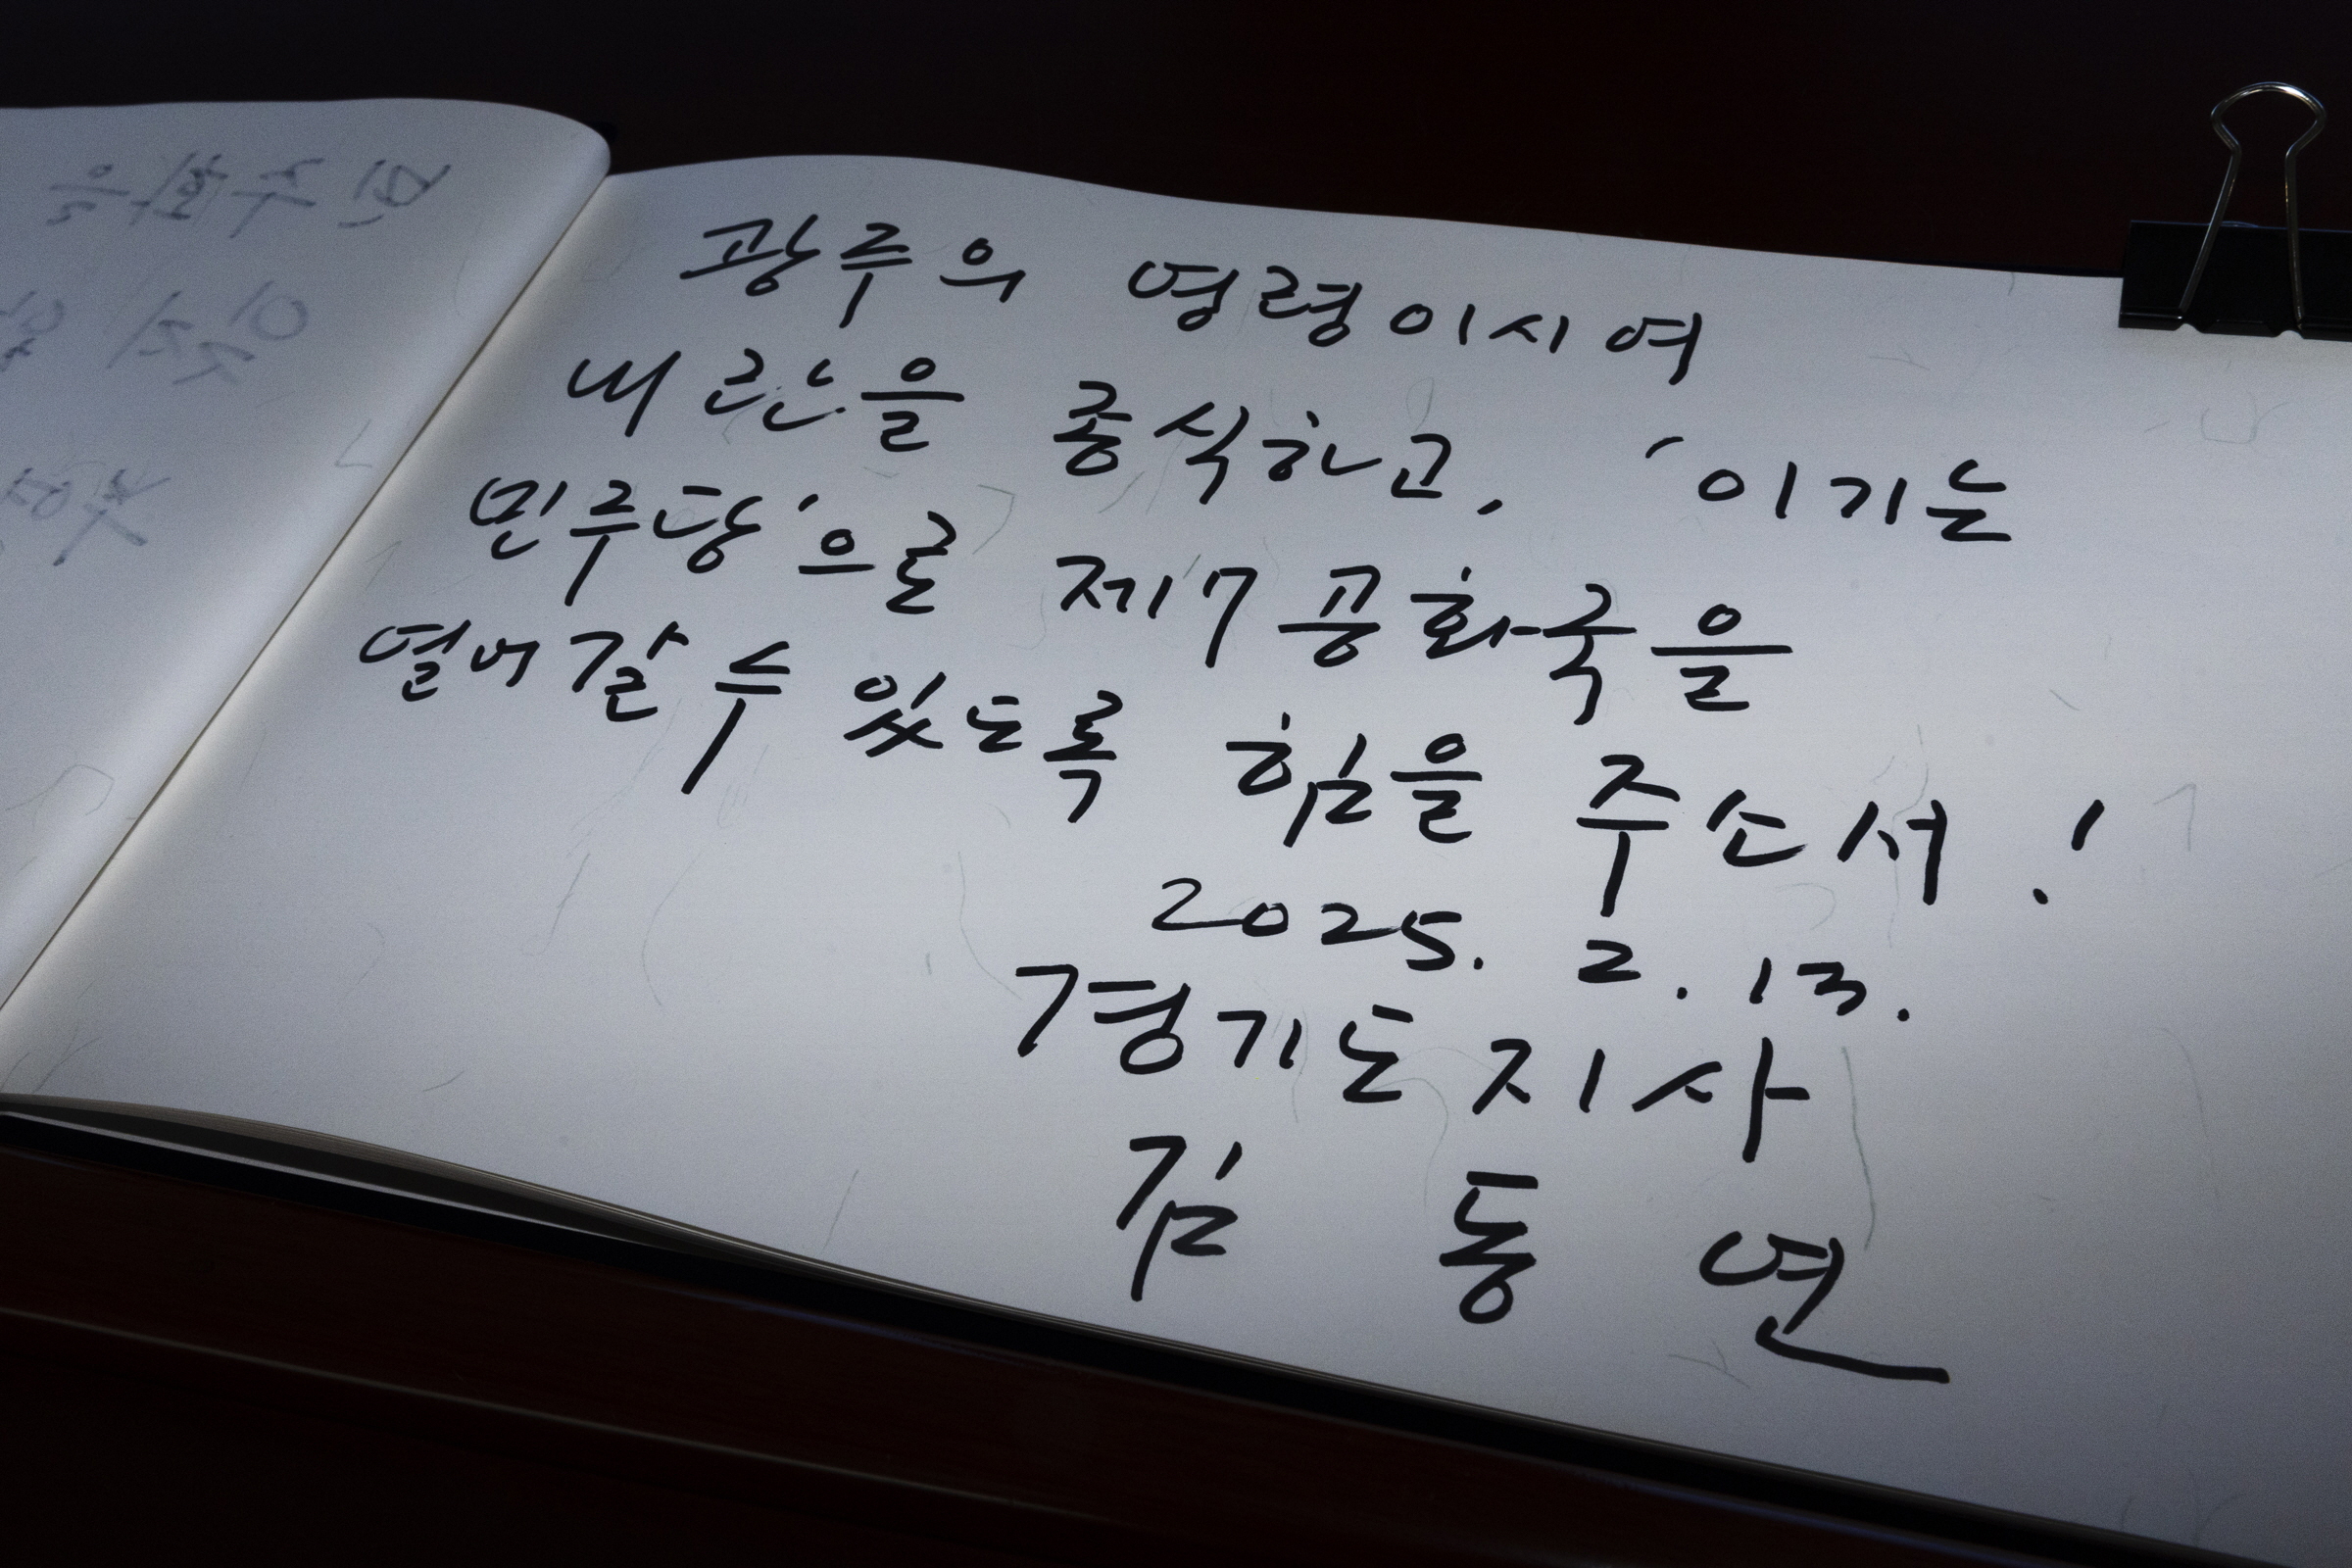 광주의 영령이시여
내란을 종식하고, '이기는
민주당'으로 제7공화국을
열어갈 수 있도록 힘을 주소서!
2025. 2. 13.
경기도지사
김 동 연